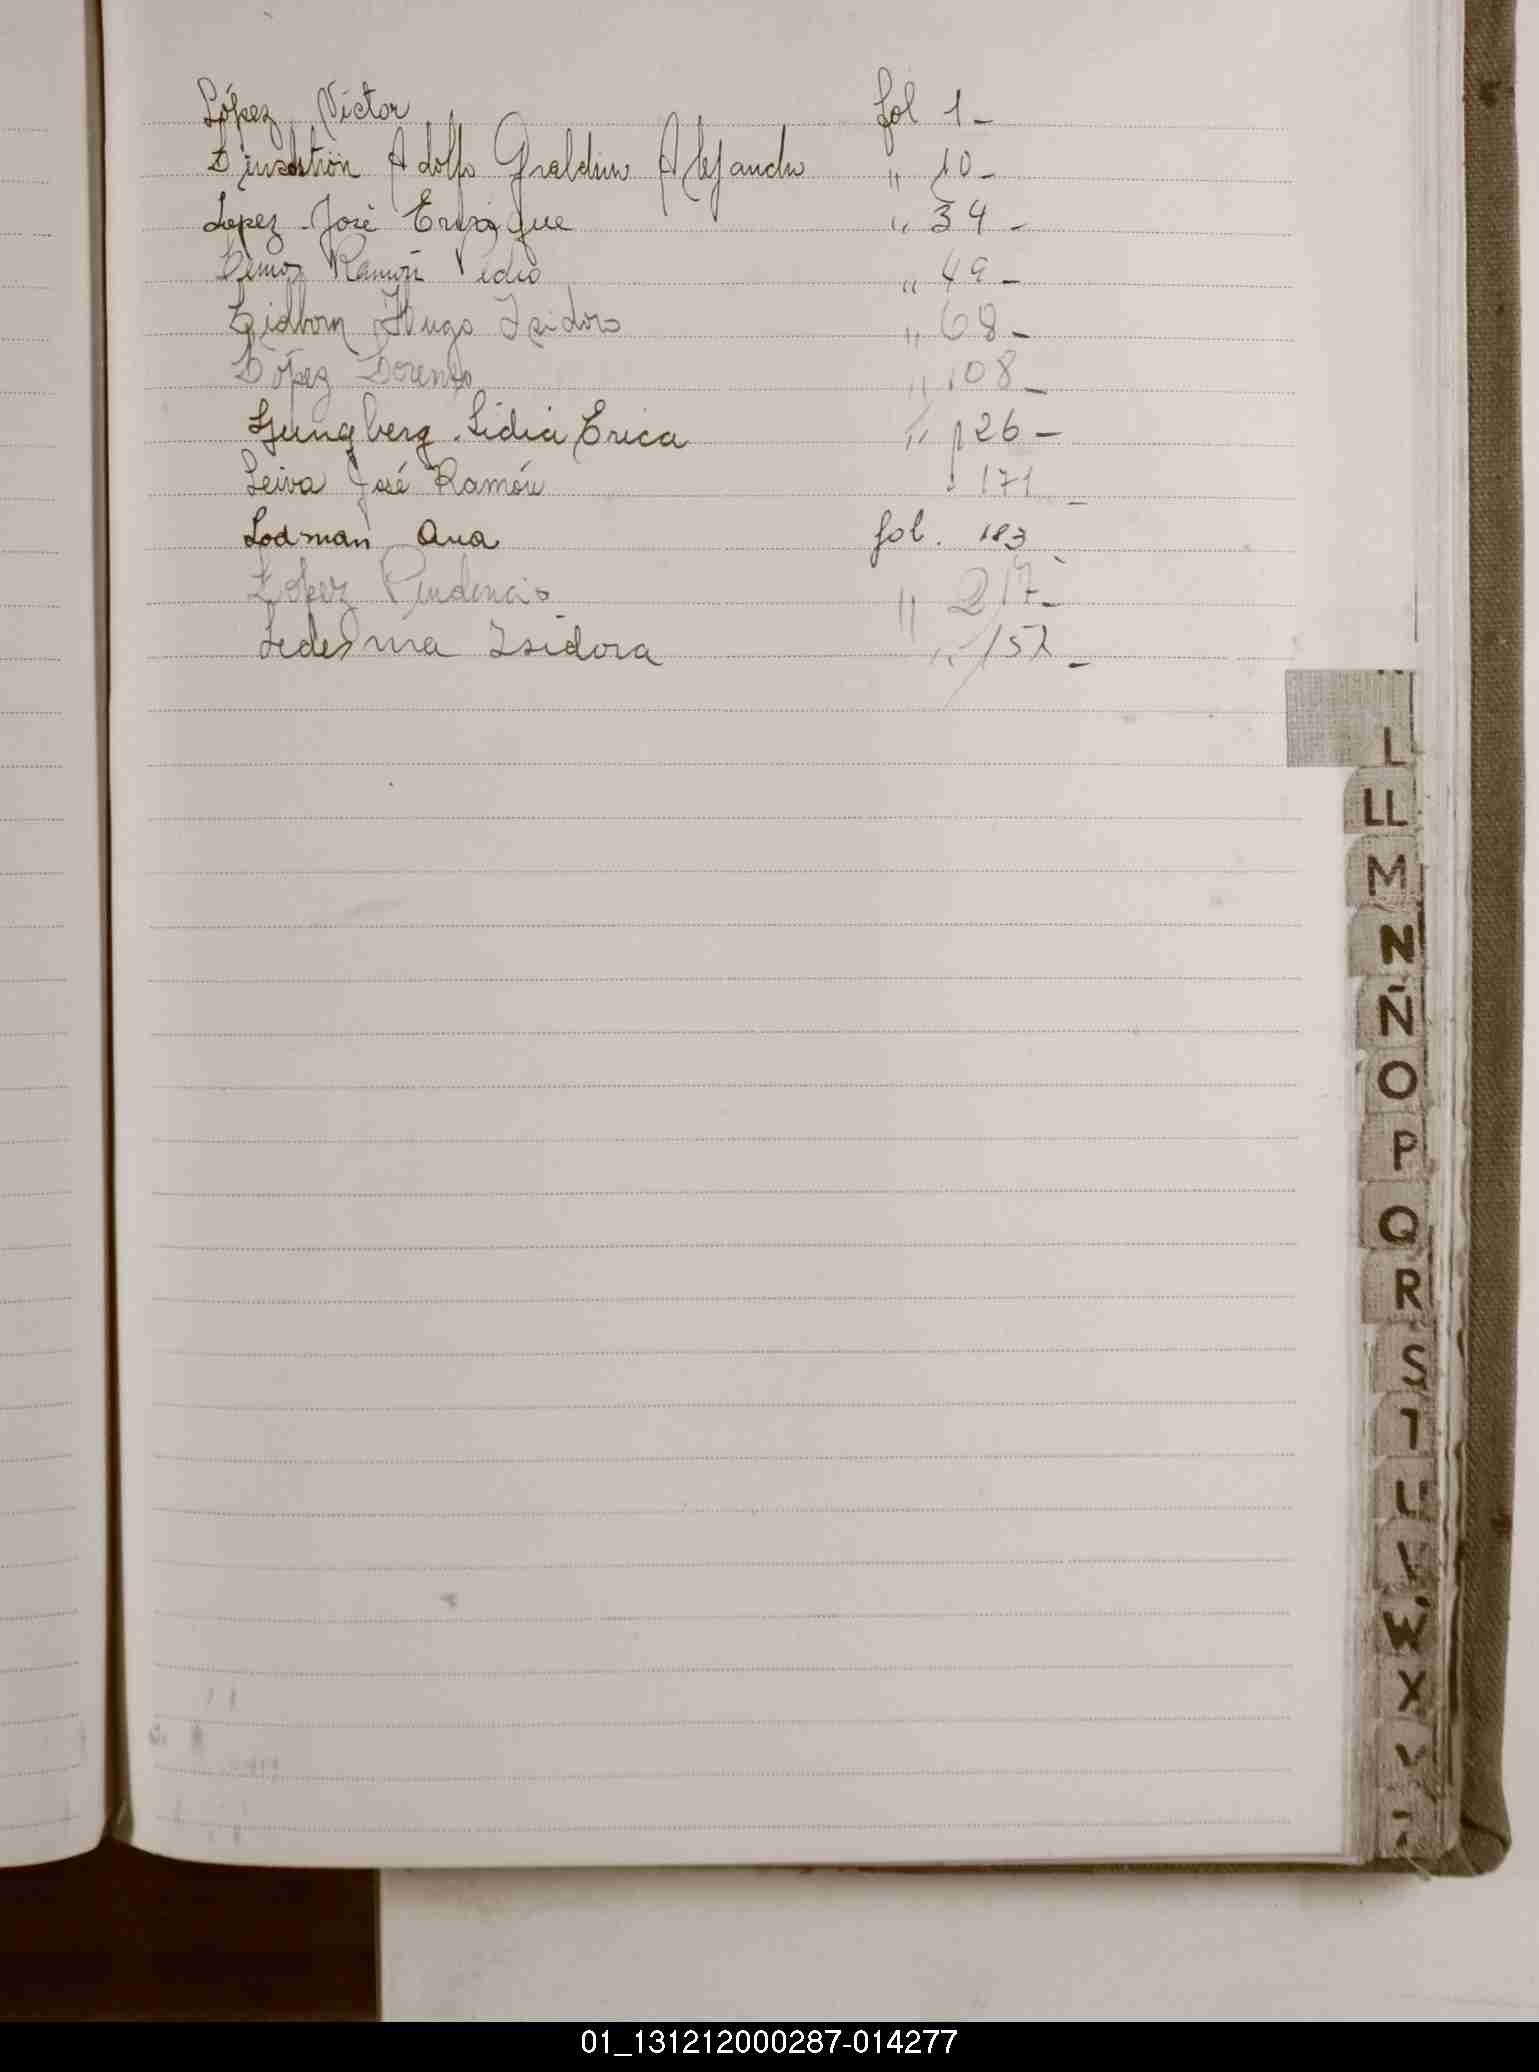 López Víctor fol 1 -
Adolfo Alejandro " 10 -
Lopez José Enrique " 34 -
Lemos Ramón Pedro " 49 -
Hugo Isidoro " 68 -
López Lorenzo " 108 -
Ljungberg Lidia Erica " 126 -
Leiva José Ramón 171 -
Lodman Ana fol. 183
López Prudencio " 217 -
Ledesma Isidora " 157 -
L
LL
M
N
Ñ
O
P
Q
R
S
T
U
V
W
X
Y
01_131212000287-014277